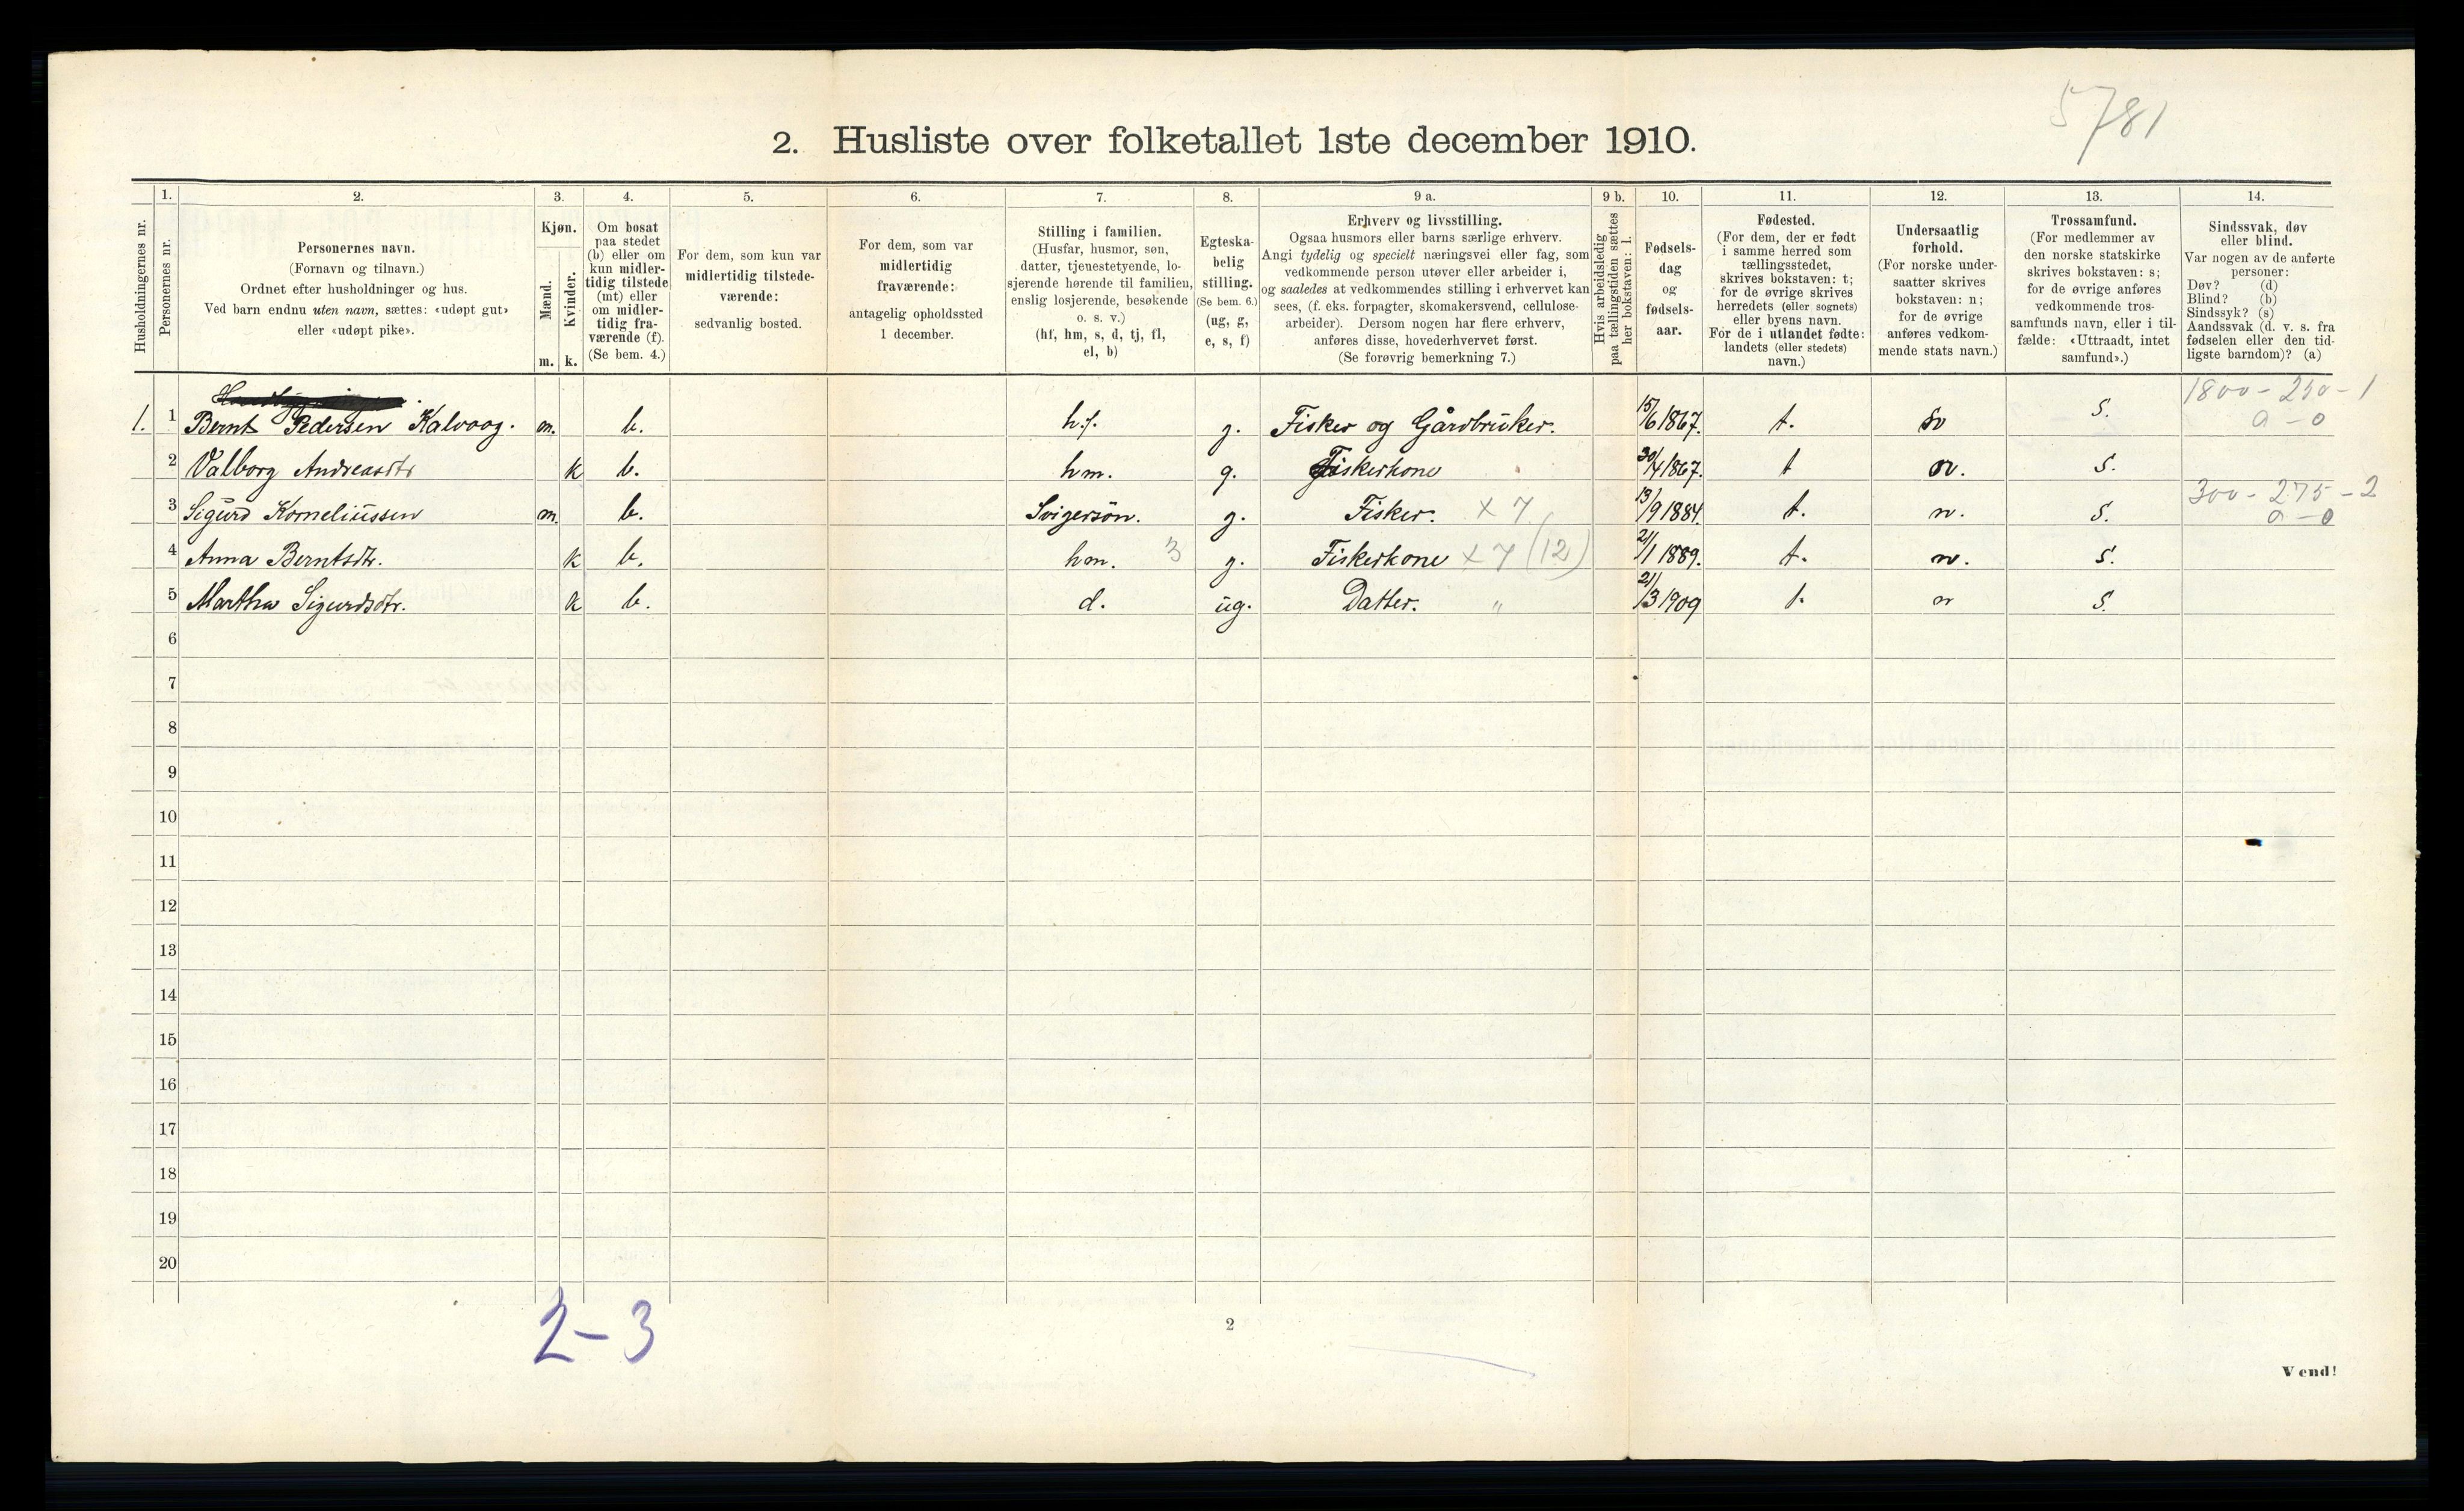 5781
2. Husliste over folketallet 1ste december 1910.
Husholdningernes nr.
1.
Personernes nr.
2.
Personernes navn.
(Fornavn og tilnavn.)
Ordnet efter husholdninger og hus.
Ved barn endnu uten navn, sættes: «udøpt gut»
eller «udøpt pike».
3.
Kjøn.
Mænd.
Kvinder.
m. k.
4.
Om bosat
paa stedet
(b) eller om
kun midler-
tidig tilstede
(mt) eller
om midler-
tidig fra-
værende (f).
(Se bem. 4.)
5.
For dem, som kun var
midlertidig tilstede-
værende:
sedvanlig bosted.
6.
For dem, som var
midlertidig
fraværende:
antagelig opholdssted
1 december.
7.
Stilling i familien.
(Husfar, husmor, søn,
datter, tjenestetyende, lo-
sjerende hørende til familien,
enslig losjerende, besøkende
o. s. v.)
(hf, hm, s, d, tj, fl,
el, b)
8.
Egteska-
belig
stilling.
(Se bem. 6.)
(ug, g,
e, s, f)
9 a.
Erhverv og livsstilling.
Ogsaa husmors eller barns særlige erhverv.
Angi tydelig og specielt næringsvei eller fag, som
vedkommende person utøver eller arbeider i,
og saaledes at vedkommendes stilling i erhvervet kan
sees, (f. eks. forpagter, skomakersvend, cellulose-
arbeider). Dersom nogen har flere erhverv,
anføres disse, hovederhvervet først.
(Se forøvrig bemerkning 7.)
9 b.
Hvis arbeidsledig
paa tællingstiden sættes
her bokstaven: l.
10.
Fødsels-
dag
og
fødsels-
aar.
11.
Fødested.
(For dem, der er født
i samme herred som
tællingsstedet,
skrives bokstaven: t;
for de øvrige skrives
herredets (eller sognets)
eller byens navn.
For de i utlandet fødte:
landets (eller stedets)
navn.)
12.
Undersaatlig
forhold.
(For norske under-
saatter skrives
bokstaven: n;
for de øvrige
anføres vedkom-
mende stats navn.)
13.
Trossamfund.
(For medlemmer av
den norske statskirke
skrives bokstaven: s;
for de øvrige anføres
vedkommende tros-
samfunds navn, eller i til-
fælde: «Uttraadt, intet
samfund».)
14.
Sindssvak, døv
eller blind.
Var nogen av de anførte
personer:
Døv? (d)
Blind? (b)
Sindssyk? (s)
Aandssvak (d. v. s. fra
fødselen eller den tid-
ligste barndom)? (a)
1800 - 250 - 1
1. 1 Bernt Pedersen Kalvaag. m. b. h.f. g. Fisker og Gårdbruker. 15/6 1867. t. S. a - 0
2 Valborg Andreasdtr k b. hm. g. Fiskerkone 30/4 1867. t n. S.
300 - 275 - 2
3 Sigurd Korneliussen m. b. Svigersøn. g. Fisker. x 7 13/9 1884. t. n. S. a - 0
4 Anna Berntsdtr. k b. hm. 3 g. Fiskerkone x 7 (12) 21/1 1889. t. n. S.
5 Martha Sigurdsdtr. k b. d. ug. Datter. " 21/3 1909 t. n S.
6
7
8
9
10
11
12
13
14
15
16
17
18
19
20
2 - 3
2
Vend!